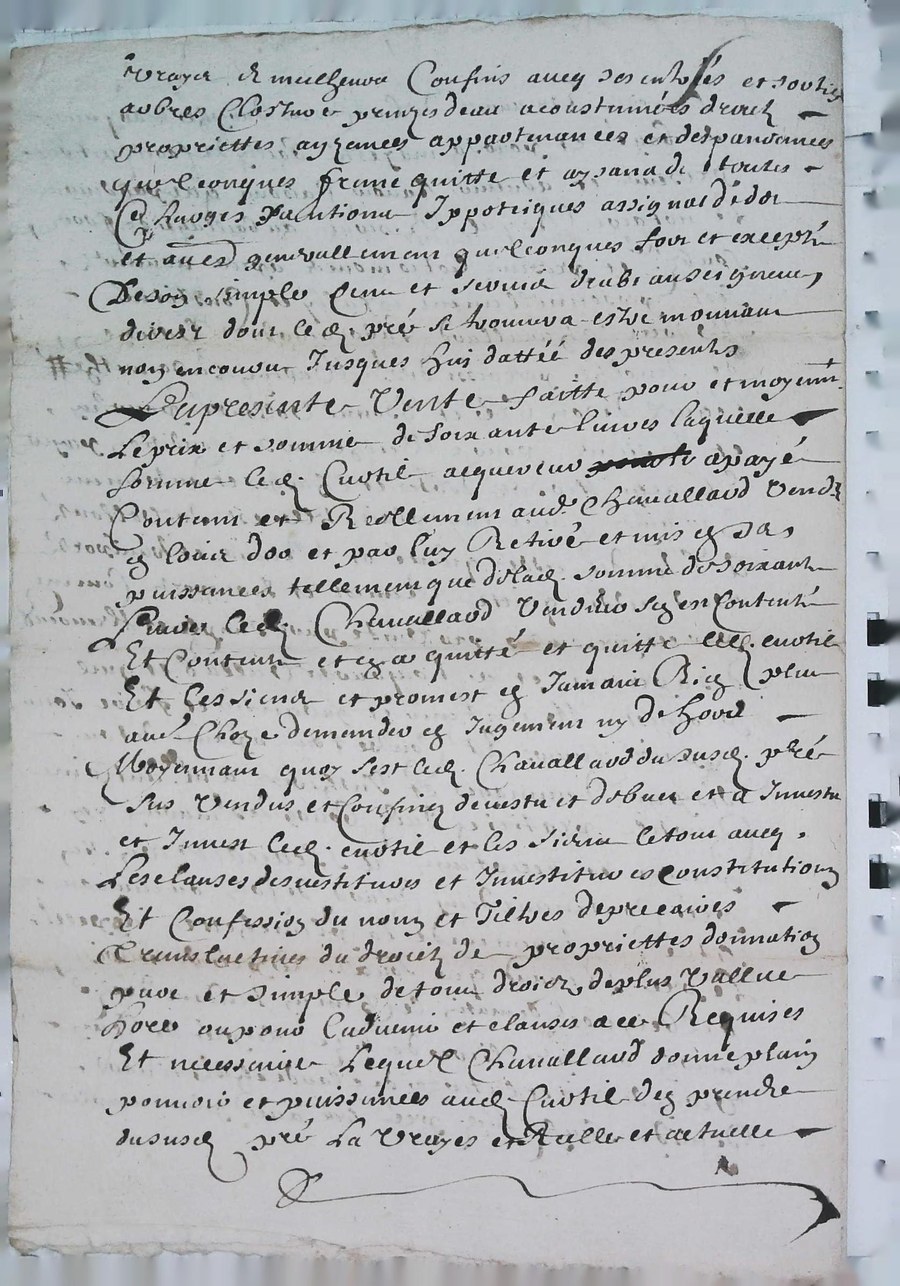 vrayes et meilheurs Confins avecq ses entrées et sorties
arbres Closture et prinzes deau acoustumées droictz
propriettes ayzances appartenances et despandences
quelconques franc quitte et aysans de toutes
Charges pantions Ippoticques assignat de dot
et aues generallement quelconques fors et excepté
De son simple Cens et servis deubz au seigneur
divers dont led. pré se trouvera estre mouvant
non encourus Jusques huy dattéé des presentes
La presente Vente faitte pour et moyent
Le prix et somme de soixante livres laquelle
somme led. Curtil acquereur a payé
Contant et Reellement aud. Chavallard Vendr
en loüis dor et par luy Retiré et mis en sa
puissances tellement que de lad. somme de soixante
livres led. Chavallard Vendeur sen Contenté
Et Contente et en a quitté et quitte led. curtil
Et les siens et promest en Jamais Rien plus
aud. Choze demander en Jugement ny dehors
Moyennant quoy sest led. Chavallard du susd. pré
sus Vendus et Confinez devestu et desvest et a Investu
et Invest led. curtil et les siens le tout avecq
Les clauses devestitures et Investitures Constitutions
Et Confession du nom et Tiltres de precaires
Translatives du droict de proprietté donnation
pure et simple de tous droictz de plus Vallue
hores ou pour Ladvenir et clauses a ce Requises
Et necessaires Lequel Chavallard donne plain
pouvoir et puissances aud. Curtil den prendre
du susd. pré La Vrayes et Reelle et actuelle